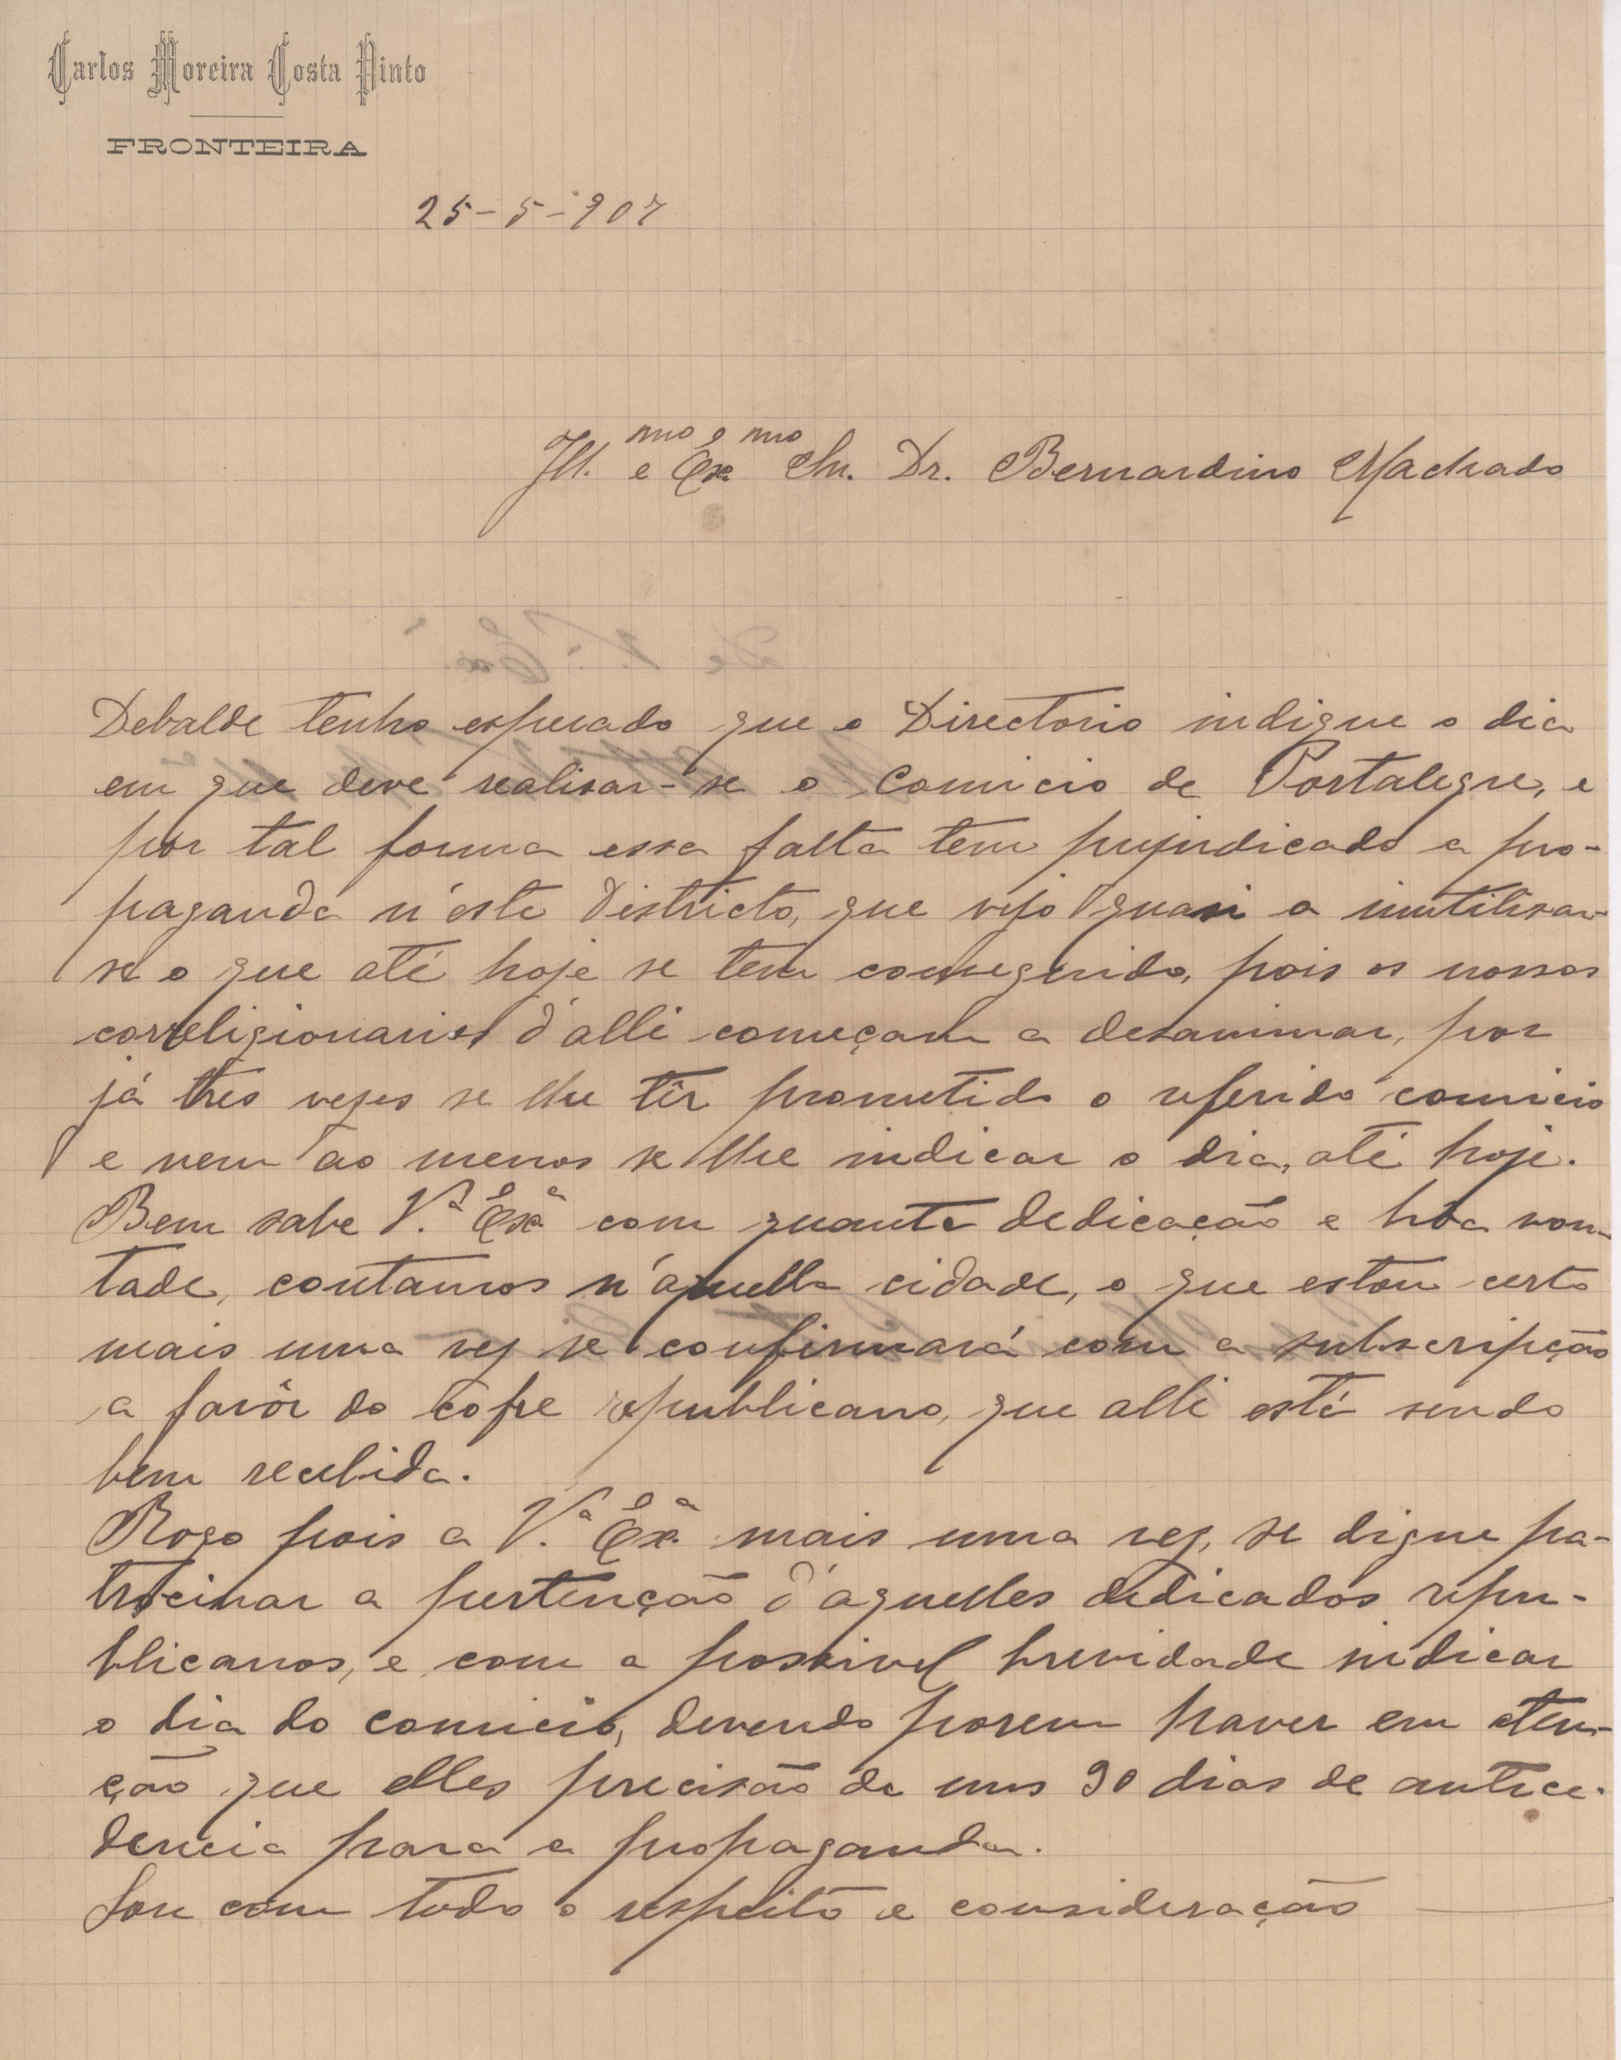 Carlos Moreira Costa Pinto
FRONTEIRA
25-5-907
Ill.mo e Ex.mo Snr. Dr. Bernardino Machado
Debalde tenho esperado que o Directorio indique o dia
em que deve realisar-se o Comicio de Portalegre, e
por tal forma essa falta tem prejudicado a pro-
paganda n'este Districto, que vejo quasi a inutilisar-
se o que até hoje se tem conseguido, pois os nossos
correligionarios d'alli começam a desanimar, por
já tres vezes se lhe têr promettido o referido comicio
e nem ao menos se lhe indicar o dia, até hoje.
Bem sabe V.ª Ex.ª com quanta dedicação e boa von-
tade, contamos n'aquella cidade, o que estou certo
mais uma vez se confirmará com a subscripção
a favôr do cofre republicano, que alli está sendo
bem recebida.
Rogo pois a V.ª Ex.ª mais uma vez, se digne pa-
trocinar a pertenção d'aquelles dedicados repu-
blicanos, e com a possivel brevidade indicar
o dia do comicio, devendo porem haver em aten-
ção que elles precisão de uns 30 dias de antece-
dencia para a propaganda.
Sou com todo o respeito e consideração